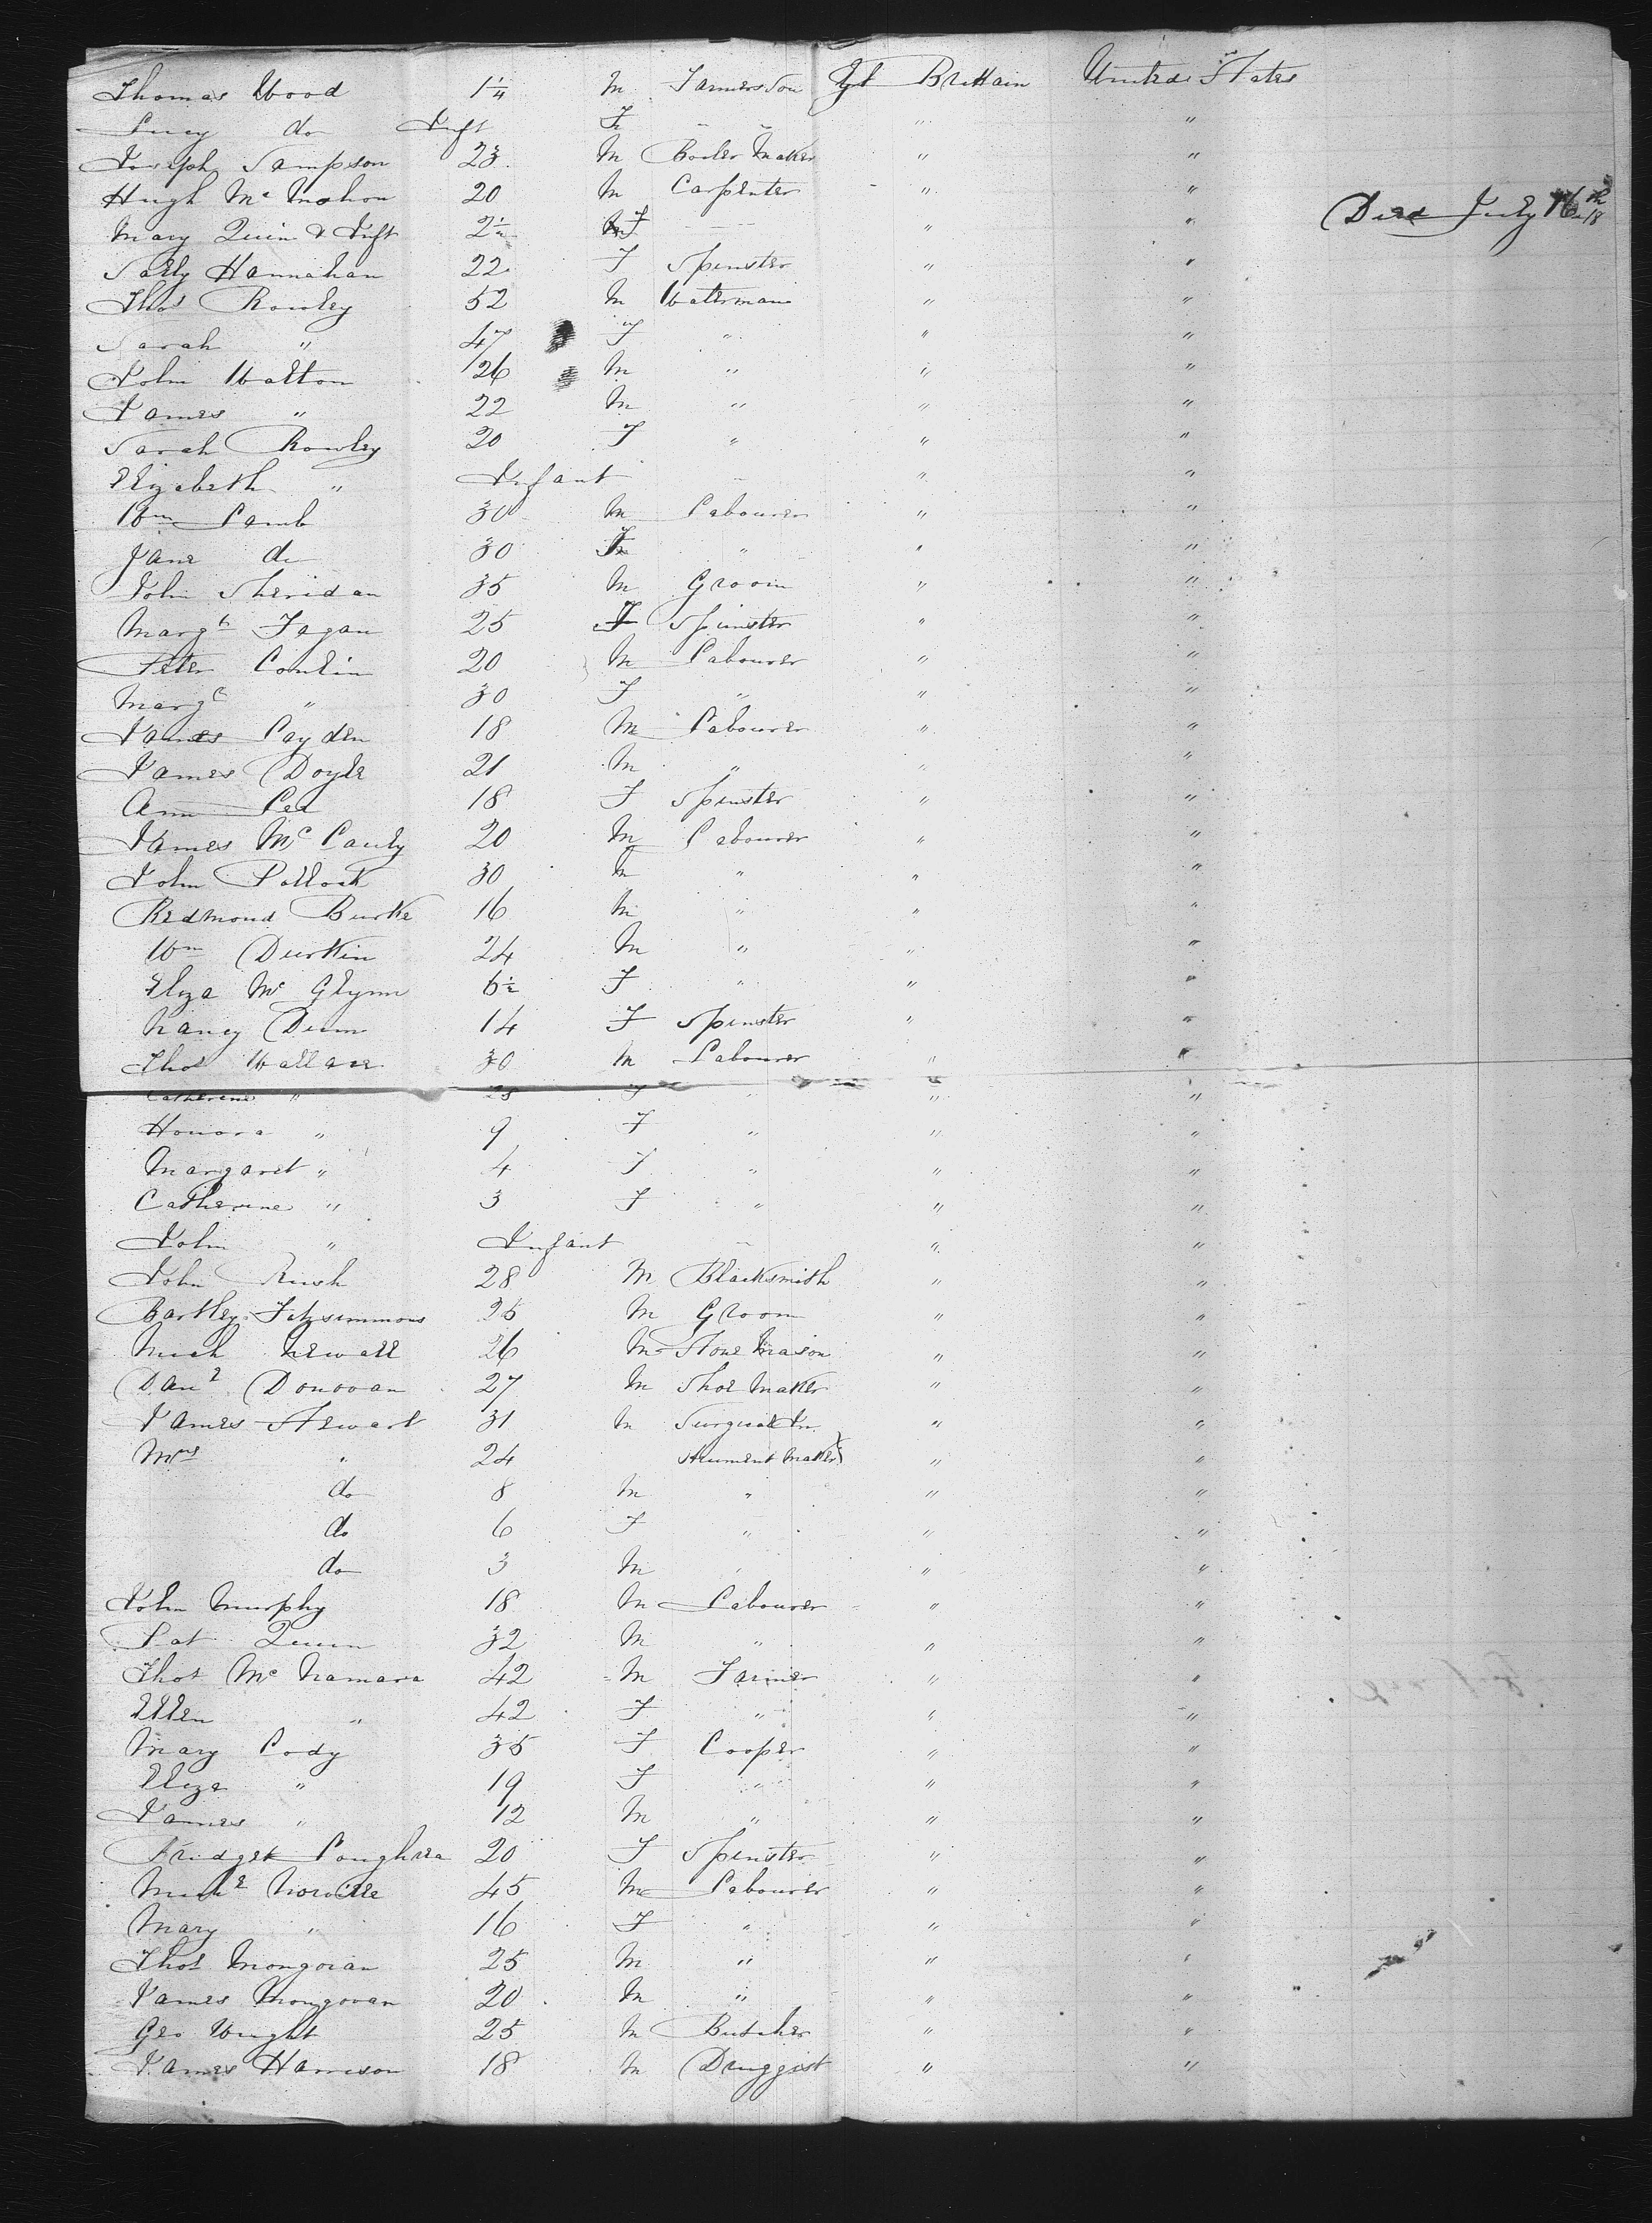 Thomas Wood 1 1/4 M Farmers Son Gt Brittain United States
Lucy do Inft F " " " "
Joseph Sampson 23 M Boiler Maker " "
Hugh Mc Mahon 20 M Carpenter " "
Mary Quin & Inft 2 1/2 F " " Died July 16th
Sally Hannahan 22 F Spinster " "
Thos Rowley 52 M Waterman " "
Sarah " 47 F " " "
John Walton 26 M " " "
James " 22 M " " "
Sarah Rowley 20 F " " "
Elizabeth " Infant " " "
Wm Lamb 30 M Labourer " "
Jane do 30 F " " "
John Sheridan 35 M Groom " "
Margt Fagan 25 F Spinster " "
Peter Conlin 20 M Labourer " "
Margt " 30 F " " "
James Layden 18 M Labourer " "
James Doyle 21 M " " "
Ann Lee 18 F Spinster " "
James Mc Cauly 20 M Labourer " "
John Pollock 30 M " " "
Redmond Burke 16 M " " "
Wm Durkin 24 M " " "
Eliza Mc Glynn 6 1/2 F " " "
Nancy Dunn 14 F Spinster " "
Thos Wallace 30 M Labourer " "
Catherine " 28 F " " "
Honora " 9 F " " "
Margaret " 4 F " " "
Catherine " 3 F " " "
John " Infant " " "
John Rush 28 M Blacksmith " "
Bartley Fitzsimmons 25 M Groom " "
Mich Newall 26 M Stone Mason " "
Danl Donovan 27 M Shoe Maker " "
James Stewart 31 M Surgical In " "
Mrs " 24 strument Maker " "
do 8 M " " "
do 6 F " " "
do 3 M " " "
John Murphy 18 M Labourer " "
Pat Quinn 32 M " " "
Thos Mc Namara 42 M Farmer " "
Ellen " 42 F " " "
Mary Cody 35 F Cooper " "
Eliza " 19 F " " "
James " 12 M " " "
Bridget Loughrea 20 F Spinster " "
Michl Norville 45 M Labourer " "
Mary " 16 F " " "
Thos Mongovan 25 M " " "
James Mongovan 20 M " " "
Geo Wright 25 M Butcher " "
James Harrison 18 M Druggist " "